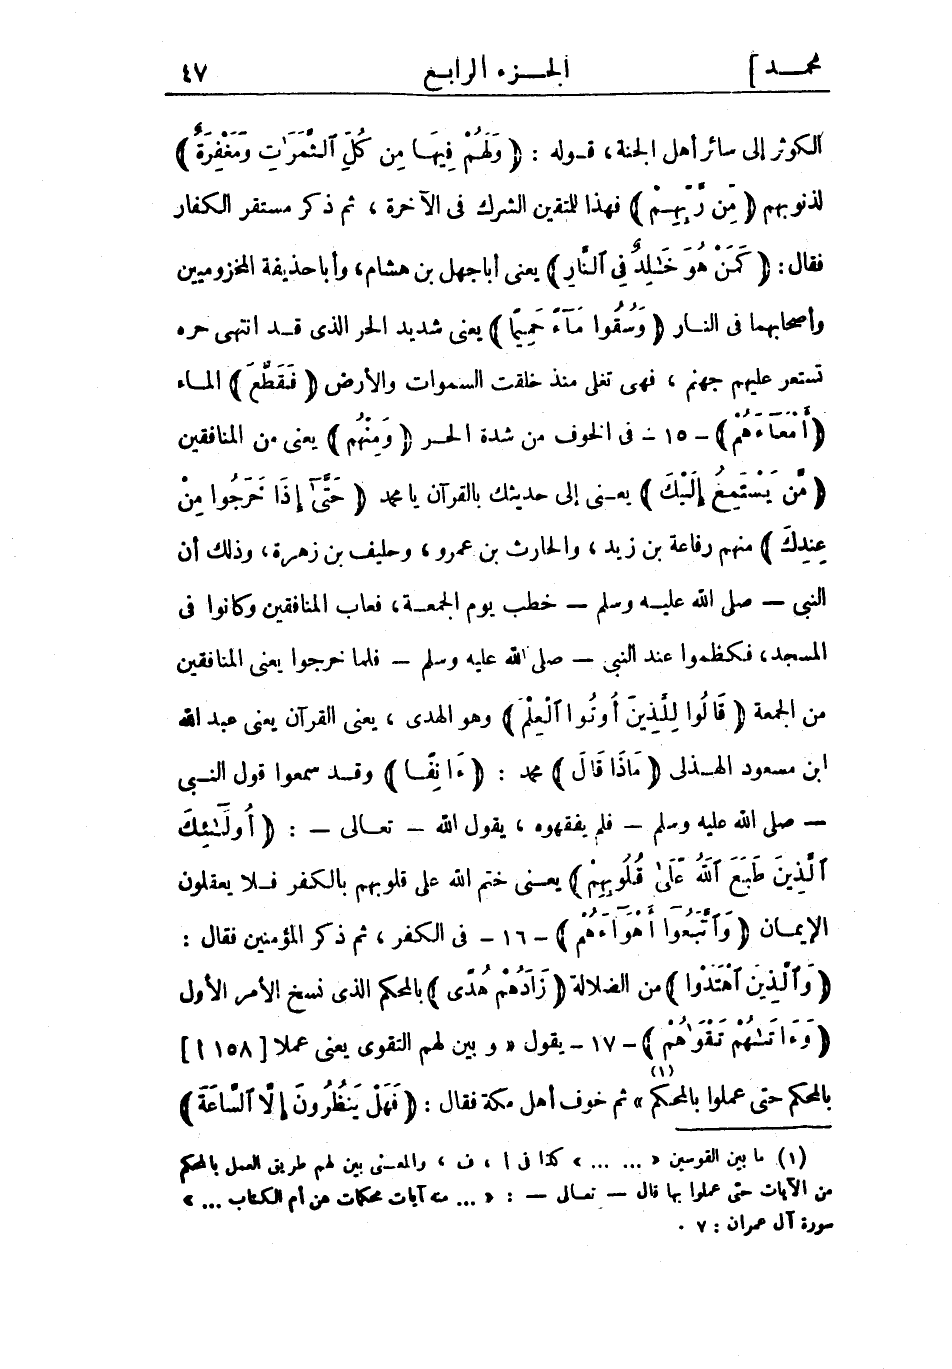 محمد ] الجزء الرابع ٤٧
الكوثر إلى سائر أهل الجنة، قوله : ﴿ وَلَهُمْ فِيهَا مِن كُلِّ ٱلثَّمَرَٰتِ وَمَغْفِرَةٌ ﴾
لذنوبهم ﴿ مِّن رَّبِّهِمْ ﴾ فهذا للمتقين الشرك فى الآخرة ، ثم ذكر مستقر الكفار
فقال : ﴿ كَمَنْ هُوَ خَٰلِدٌ فِى ٱلنَّارِ ﴾ يعنى أبا جهل بن هشام، وأبا حذيفة المخزوميين
وأصحابهما فى النار ﴿ وَسُقُوا مَآءً حَمِيمًا ﴾ يعنى شديد الحر الذى قد انتهى حره
تستعر عليهم جهنم ، فهى تغلى منذ خلقت السموات والأرض ﴿ فَقَطَّعَ ﴾ الماء
﴿ أَمْعَآءَهُمْ ﴾ - ١٥ - فى الخوف من شدة الحر ﴿ وَمِنْهُم ﴾ يعنى من المنافقين
﴿ مَّن يَسْتَمِعُ إِلَيْكَ ﴾ يعنى إلى حديثك بالقرآن يا محمد ﴿ حَتَّىٰٓ إِذَا خَرَجُوا مِنْ
عِندِكَ ﴾ منهم رفاعة بن زيد، والحارث بن عمرو، وحليف بن زهرة، وذلك أن
النبى — صلى الله عليه وسلم — خطب يوم الجمعة، فعاب المنافقين وكانوا فى
المسجد، فكظموا عند النبى — صلى الله عليه وسلم — فلما خرجوا يعنى المنافقين
من الجمعة ﴿ قَالُوا لِلَّذِينَ أُوتُوا ٱلْعِلْمَ ﴾ وهو الهدى ، يعنى القرآن يعنى عبد الله
ابن مسعود الهذلى ﴿ مَاذَا قَالَ ﴾ محمد : ﴿ ءَانِفًا ﴾ وقد سمعوا قول النبى
— صلى الله عليه وسلم — فلم يفقهوه ، يقول الله — تعالى — : ﴿ أُولَٰٓئِكَ
ٱلَّذِينَ طَبَعَ ٱللَّهُ عَلَىٰ قُلُوبِهِمْ ﴾ يعنى ختم الله على قلوبهم بالكفر فلا يعقلون
الإيمان ﴿ وَٱتَّبَعُوا أَهْوَآءَهُمْ ﴾ - ١٦ - فى الكفر ، ثم ذكر المؤمنين فقال :
﴿ وَٱلَّذِينَ ٱهْتَدَوْا ﴾ من الضلالة ﴿ زَادَهُمْ هُدًى ﴾ بالمحكم الذى نسخ الأمر الأول
﴿ وَءَاتَىٰهُمْ تَقْوَىٰهُمْ ﴾ - ١٧ - يقول « و بين لهم التقوى يعنى عملا [ ١٥٨ أ ]
بالمحكم حتى عملوا بالمحكم » (١) ثم خوف أهل مكة فقال : ﴿ فَهَلْ يَنظُرُونَ إِلَّا ٱلسَّاعَةَ ﴾
(١) ما بين القوسين « ... ... » كذا فى أ ، ف ، والمعنى بين لهم طريق العمل بالمحكم
من الآيات حتى عملوا بها قال — تعالى — : « ... منه آيات محكمات هن أم الكتاب ... »
سورة آل عمران : ٧ .